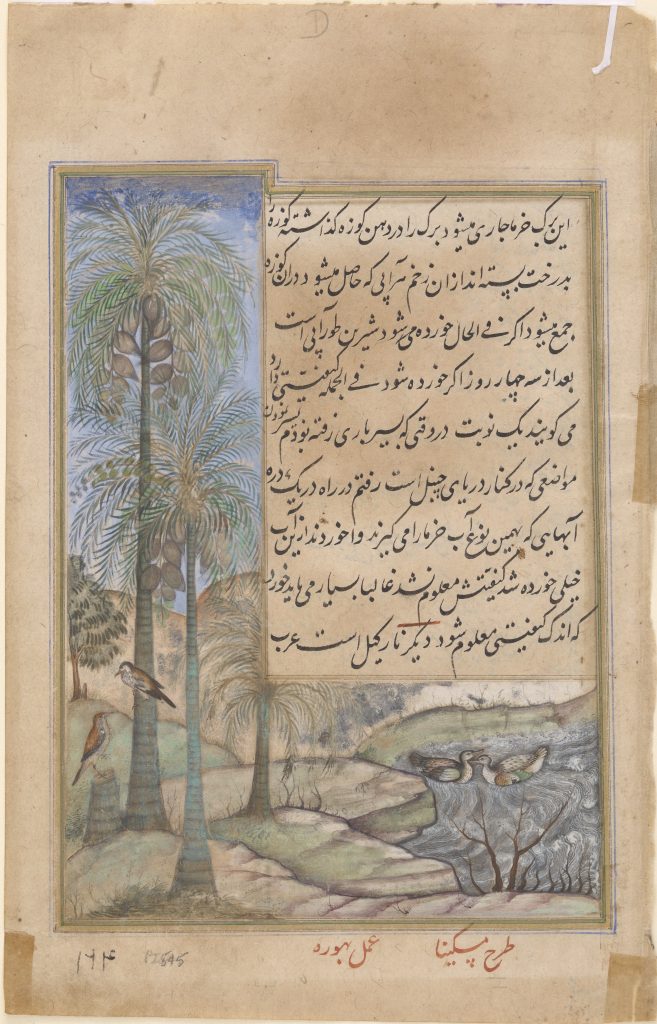 این برک خرما جاری میشود برک را در دهن کوزه کذاشته کوزه را
بدرخت بسته اند ازان زخم هر آبی که حاصل میشود دران کوزه
جمع میشود اکر فی الحال خورده می شود شیرین طور آبی است
بعد از سه چهار روز اکر خورده شود فی الجمله کیفیتی دارد
می کویند یک نوبت در وقتی که بسیر باری رفته بودم بسیر کردن
مواضعی که در کنار دریای چنبل است رفتم در راه در یک دره
آبهایی که بهمین نوع آب خرما را می کیرند واخوردند ازین آب
خیلی خورده شد کیفیتش معلوم نشد غالبا بسیار می باید خورد
که اندک کیفیتی معلوم شود دیکر نارکیل است عرب
طرح مسکینا
عمل بهوره
۱۶۴
12545
D